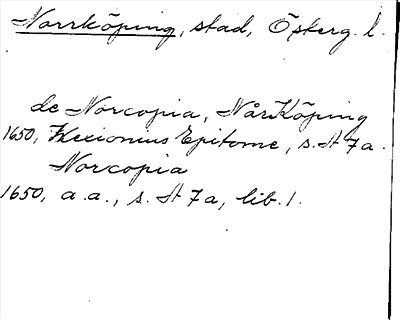 Norrköping, stad, Österg. l.
de Norcopia, NårKöping
1650, Kexionius Epitome, s. St 7a.
Norcopia
1650, a.a., s. St 7a, lib. 1.